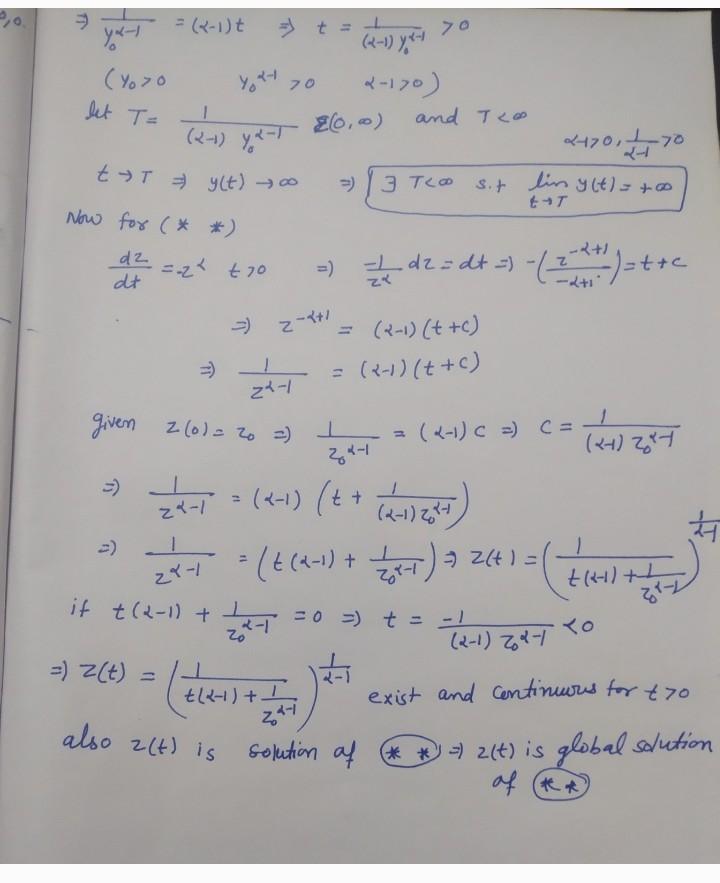 0,0. ⇒ 1/y₀^(α-1) = (α-1)t ⇒ t = 1/((α-1) y₀^(α-1)) > 0
(y₀>0 y₀^(α-1) >0 α-1>0)
let T = 1/((α-1) y₀^(α-1)) ε(0,∞) and T<∞
α-1>0, 1/(α-1) >0
t → T ⇒ y(t) → ∞ ⇒ ∃ T<∞ s.t lim_(t→T) y(t) = +∞
Now for (* *)
dz/dt = -z^α t>0 ⇒ -1/z^α dz = dt ⇒ -(z^(-α+1)/(-α+1)) = t+c
⇒ z^(-α+1) = (α-1)(t+c)
⇒ 1/z^(α-1) = (α-1)(t+c)
given z(0) = z₀ ⇒ 1/z₀^(α-1) = (α-1) c ⇒ c = 1/((α-1) z₀^(α-1))
⇒ 1/z^(α-1) = (α-1) (t + 1/((α-1) z₀^(α-1)))
⇒ 1/z^(α-1) = (t(α-1) + 1/z₀^(α-1)) ⇒ z(t) = (1/(t(α-1) + 1/z₀^(α-1)))^(1/(α-1))
if t(α-1) + 1/z₀^(α-1) = 0 ⇒ t = -1/((α-1) z₀^(α-1)) <0
⇒ z(t) = (1/(t(α-1) + 1/z₀^(α-1)))^(1/(α-1)) exist and continuous for t>0
also z(t) is solution of (* *) ⇒ z(t) is global solution
of (* *)